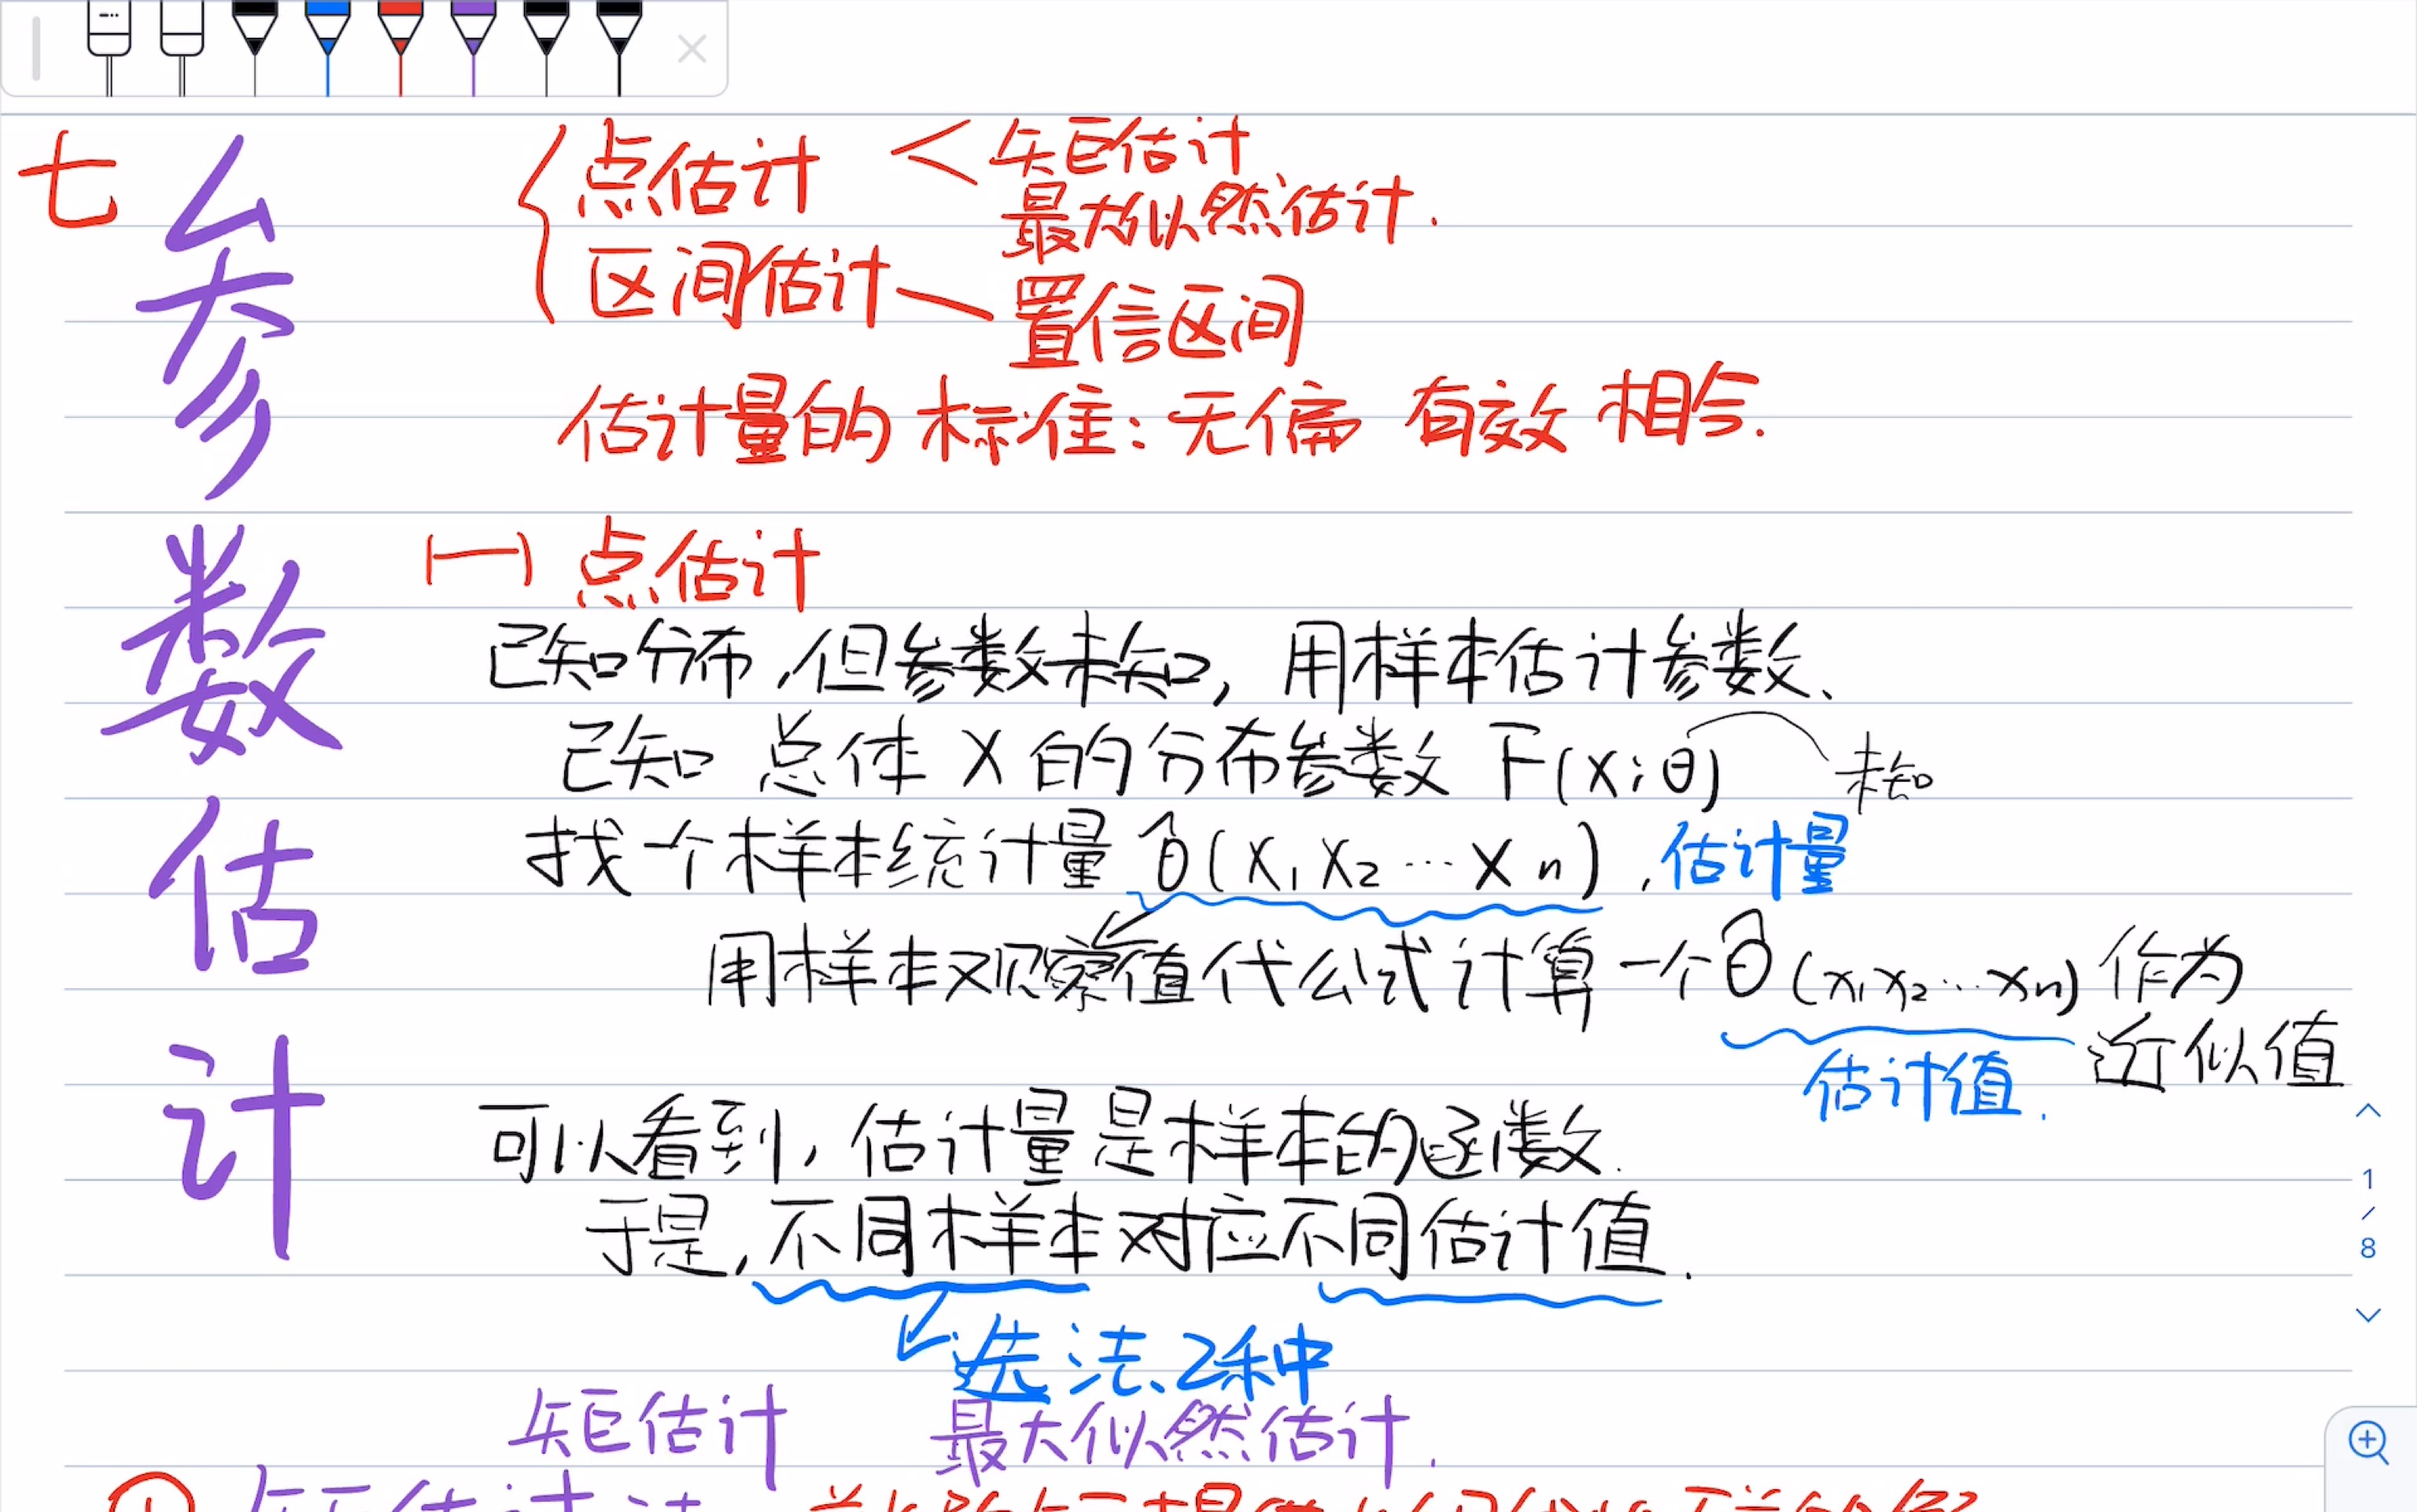 七 参数估计
点估计 < 矩估计
最大似然估计.
区间估计 — 置信区间
估计量的标准:无偏 有效 相合.
(一) 点估计
已知分布,但参数未知,用样本估计参数、
已知 总体 X 的分布参数 F(X;θ) 未知
找一个样本统计量 θ̂(X₁X₂…Xn),估计量
用样本观察值代公式计算一个θ̂(x₁x₂…xn) 作为
近似值
估计值.
可以看到,估计量是样本的函数.
于是,不同样本对应不同估计值.
选法、2种
矩估计 最大似然估计.
1/8